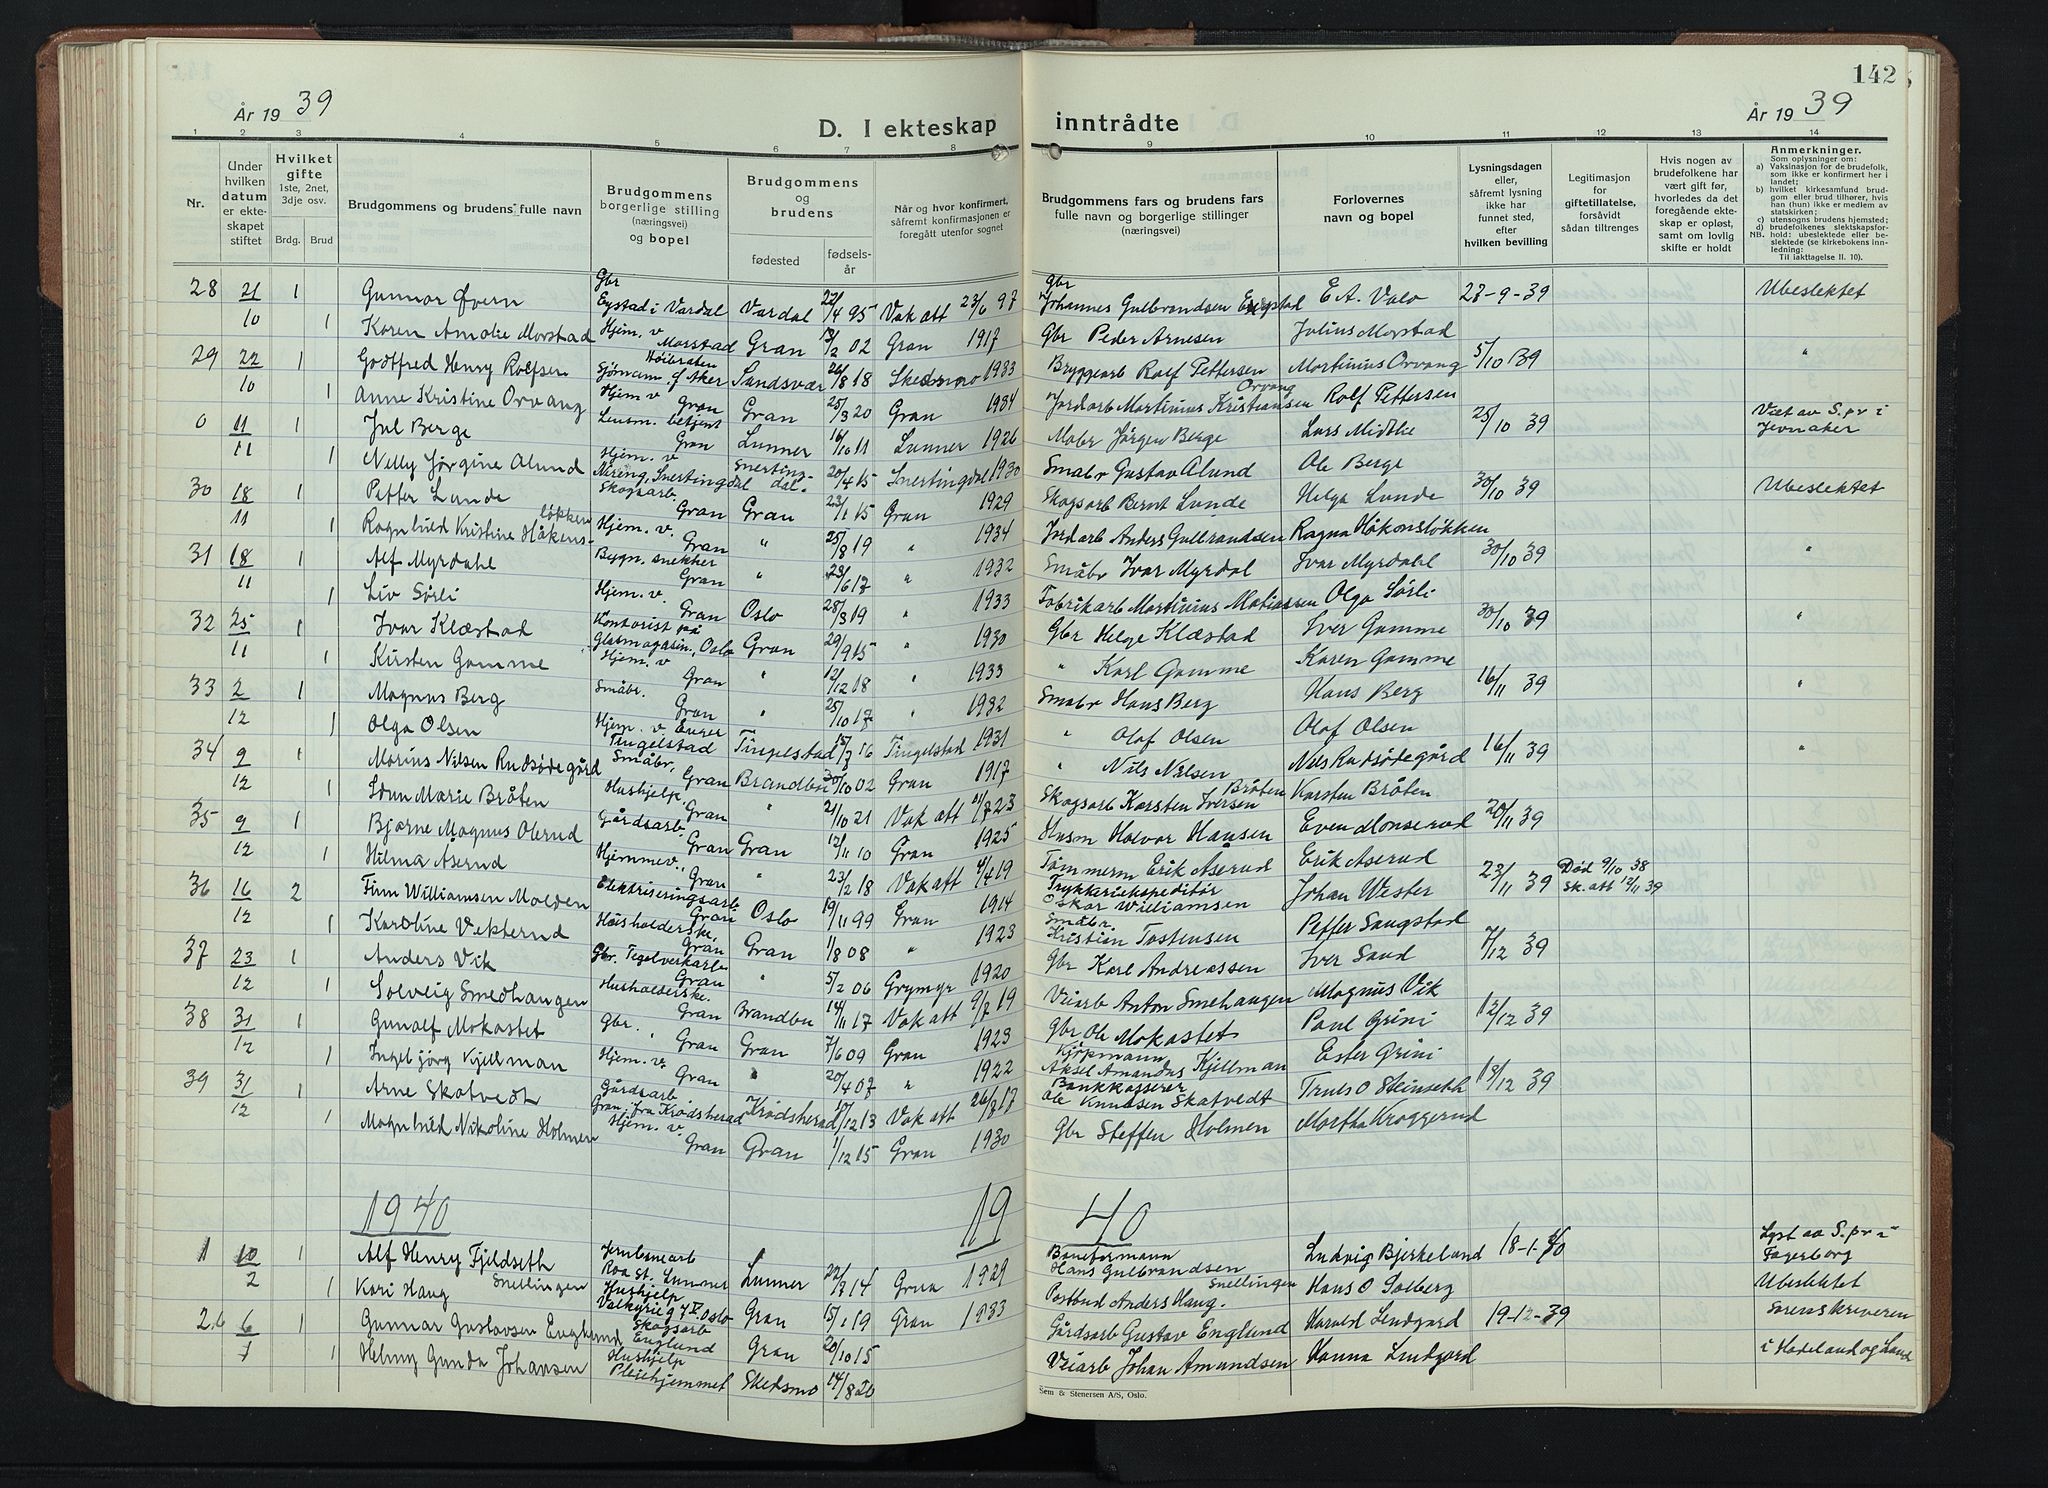 142
År 19 39
D. I ekteskap inntrådte
År 19 39
1 2 3 4 5 6 7 8 9 10 11 12 13 14
Nr.
Under hvilken datum er ekteskapet stiftet
Hvilket gifte 1ste, 2net, 3dje osv.
Brdg. Brud
Brudgommens og brudens fulle navn
Brudgommens borgerlige stilling (næringsvei) og bopel
Brudgommens og brudens
fødested fødselsår
Når og hvor konfirmert, såfremt konfirmasjonen er foregått utenfor sognet
Brudgommens fars og brudens fars fulle navn og borgerlige stillinger (næringsvei)
Forlovernes navn og bopel
Lysningsdagen eller, såfremt lysning ikke har funnet sted, efter hvilken bevilling
Legitimasjon for giftetillatelse, forsåvidt sådan tiltrenges
Hvis nogen av brudefolkene har vært gift før, hvorledes da det foregående ekteskap er opløst, samt om lovlig skifte er holdt
Anmerkninger.
Som oplysninger om:
a) Vaksinasjon for de brudefolk, som ikke er konfirmert her i landet;
b) hvilket kirkesamfund brudgom eller brud tilhører, hvis han (hun) ikke er medlem av statskirken;
c) utensogns brudens hjemsted;
d) brudefolkenes slektskapsforhold: ubeslektede eller beslektede (se kirkebokens innledning:
NB.
Til iakttagelse II. 10).
28 21/10 1 Gunnar Øvern Gbr Engstad i Vardal Vardal 22/4 95 Vak att 23/6 97 Gbr Johannes Gulbrandsen Engstad E. A. Valo 27-9-39 Ubeslektet
1 Karen Amalie Morstad Hjem. v. Morstad Gran 13/2 02 Gran 1917 Gbr Peder Arnesen Julius Morstad
29 22/10 1 Godtfred Henry Rolfsen Høibråten Sjømann f Aker Sandsvær 24/8 18 Skedsmo 1933 Bryggearb Rolf Pettersen Martinius Orvang 5/10 39 "
1 Anne Kristine Orvang Hjem v Gran Gran 25/3 20 Gran 1934 Jordarb Martinius Kristiansen Orvang Rolf Pettersen
0 11/11 1 Jul Berge Lensm. betjent Gran Lunner 16/10 11 Lunner 1926 Mabr Jørgen Berge Lars Midtlie 25/10 39 Viet av S.pr i Jevnaker
1 Nelly Jørgine Ålund Hjem. v Næring, Snertingdal Snertingdal. 20/4 15 Snertingdal 1930 Småbr Gustav Ålund Ole Berge
30 18/11 1 Petter Lunde Skogsarb. Gran Gran 23/1 15 Gran 1929 Skogsarb Bernt Lunde Helga Lunde 30/10 39 Ubeslektet
1 Ragnhild Kristine Håkensløkken Hjem. v. Gran " 25/8 19 " 1934 Jordarb Anders Gulbrandsen Ragna Håkonsløkken
31 18/11 1 Alf Myrdahl Bygn. snekker Gran " 23/6 17 " 1932 Småbr Ivar Myrdal Ivar Myrdahl 30/10 39 "
1 Liv Sørli Hjem. v. Gran Oslo 28/3 19 " 1933 Fabrikarb Martinius Matiassen Olga Sørli
32 25/11 1 Ivar Klæstad Kontorist på Glasmagasin., Oslo Gran 29/9 15 " 1930 Gbr Helge Klæstad Iver Gamme 30/10 39 "
1 Kirsten Gamme Hjem. v Gran " 12/12 18 " 1933 " Karl Gamme Karen Gamme
33 2/12 1 Magnus Berg Småbr. Gran " 25/10 17 " 1932 Småbr Hans Berg Hans Berg 16/11 39 "
1 Olga Olsen Hjem. v. Enger Tingelstad Tingelstad 15/7 16 Tingelstad 1931 " Olaf Olsen Olaf Olsen
34 9/12 1 Marius Nilsen Rudsødegård Småbr. Gran Brandbu 30/10 02 Gran 1917 " Nils Nilsen Nils Rudsødegård 16/11 39 "
1 Marie Bråten Hushjelp. Gran " 21/10 21 Vak att 21/7 23 Skogsarb Karsten Iversen Bråten Karsten Bråten
35 9/12 1 Bjarne Magnus Olerud Gårdsarb. Gran Gran 12/11 10 Gran 1925 Husm Halvor Hansen Even Monserud 20/11 39
1 Hilma Åserud Hjemmev. Gran " 23/2 18 Vak att 4/4 19 Tømmerm Erik Åserud Erik Aserud
36 16/12 2 Finn Williamsen Molden Elektriseringsarb. Gran Oslo 19/11 99 Gran 1914 Trykkeriekspeditør Oskar Williamsen Johan Wester 23/11 39 Død 9/10 38 Sk. att 12/11 39
1 Karoline Vekterud Husholderske. Gran Gran 1/8 08 " 1923 Småbr. Kristian Tostensen Petter Sangstad
37 23/12 1 Anders Vik Gbr. Tegelverkarb Gran " 5/2 06 Grymyr 1920 Gbr Karl Andreassen Iver Sand 7/12 39
1 Solveig Smedhaugen Husholderske. Gran Brandbu 14/11 17 Vak att 9/7 19 Veiarb Anton Smehaugen Magnus Vik
38 31/12 1 Gunalf Mokastet Gbr. Gran Gran 7/6 09 Gran 1923 Gbr Ole Mokastet Paul Grini 12/12 39
1 Ingebjørg Kjellman Hjem. v. Gran " 20/4 07 " 1922 Kjøpmann Aksel Amandus Kjellman Ester Grini
39 31/12 1 Arne Skatvedt Gårdsarb Gran, fra Krødsherad Krødsherad 17/12 13 Vak att 26/8 17 Bankkasserer Ole Knudsen Skatvedt Truls O Steinseth 13/12 39
1 Magnhild Nikoline Holmen Hjem. v. Gran Gran 1/12 15 Gran 1930 Gbr Steffen Holmen Martha Kroggerud
1940 19 40
1 10/2 1 Alf Henry Fjeldseth Jernbanearb Roa St. Lunner Lunner 22/7 14 Grua 1929 Baneformann Hans Gulbrandsen Ludvig Bjerkeland 18-1-40 Lyst av S.pr i Fagerborg
1 Kari Haug Snellingen Hushjelp Valkyrieg 7 V. Oslo Gran 15/1 19 Gran 1933 Postbud Anders Haug. Snellingen Hans O Solberg Ubeslektet
2.b 6/1 1 Gunnar Gustavsen Englund Skogsarb Englund Gran 20/10 15 Gårdsarb Gustav Englund Harald Lindgard 19-12-39 Sorenskriveren
1 Helny Gunda Johansen Hushjelp Pleiehjemmet Skedsmo 14/8 20 Veiarb Johan Amundsen Hanna Lindgard i Hadeland og Land
Sem & Stenersen A/S, Oslo.